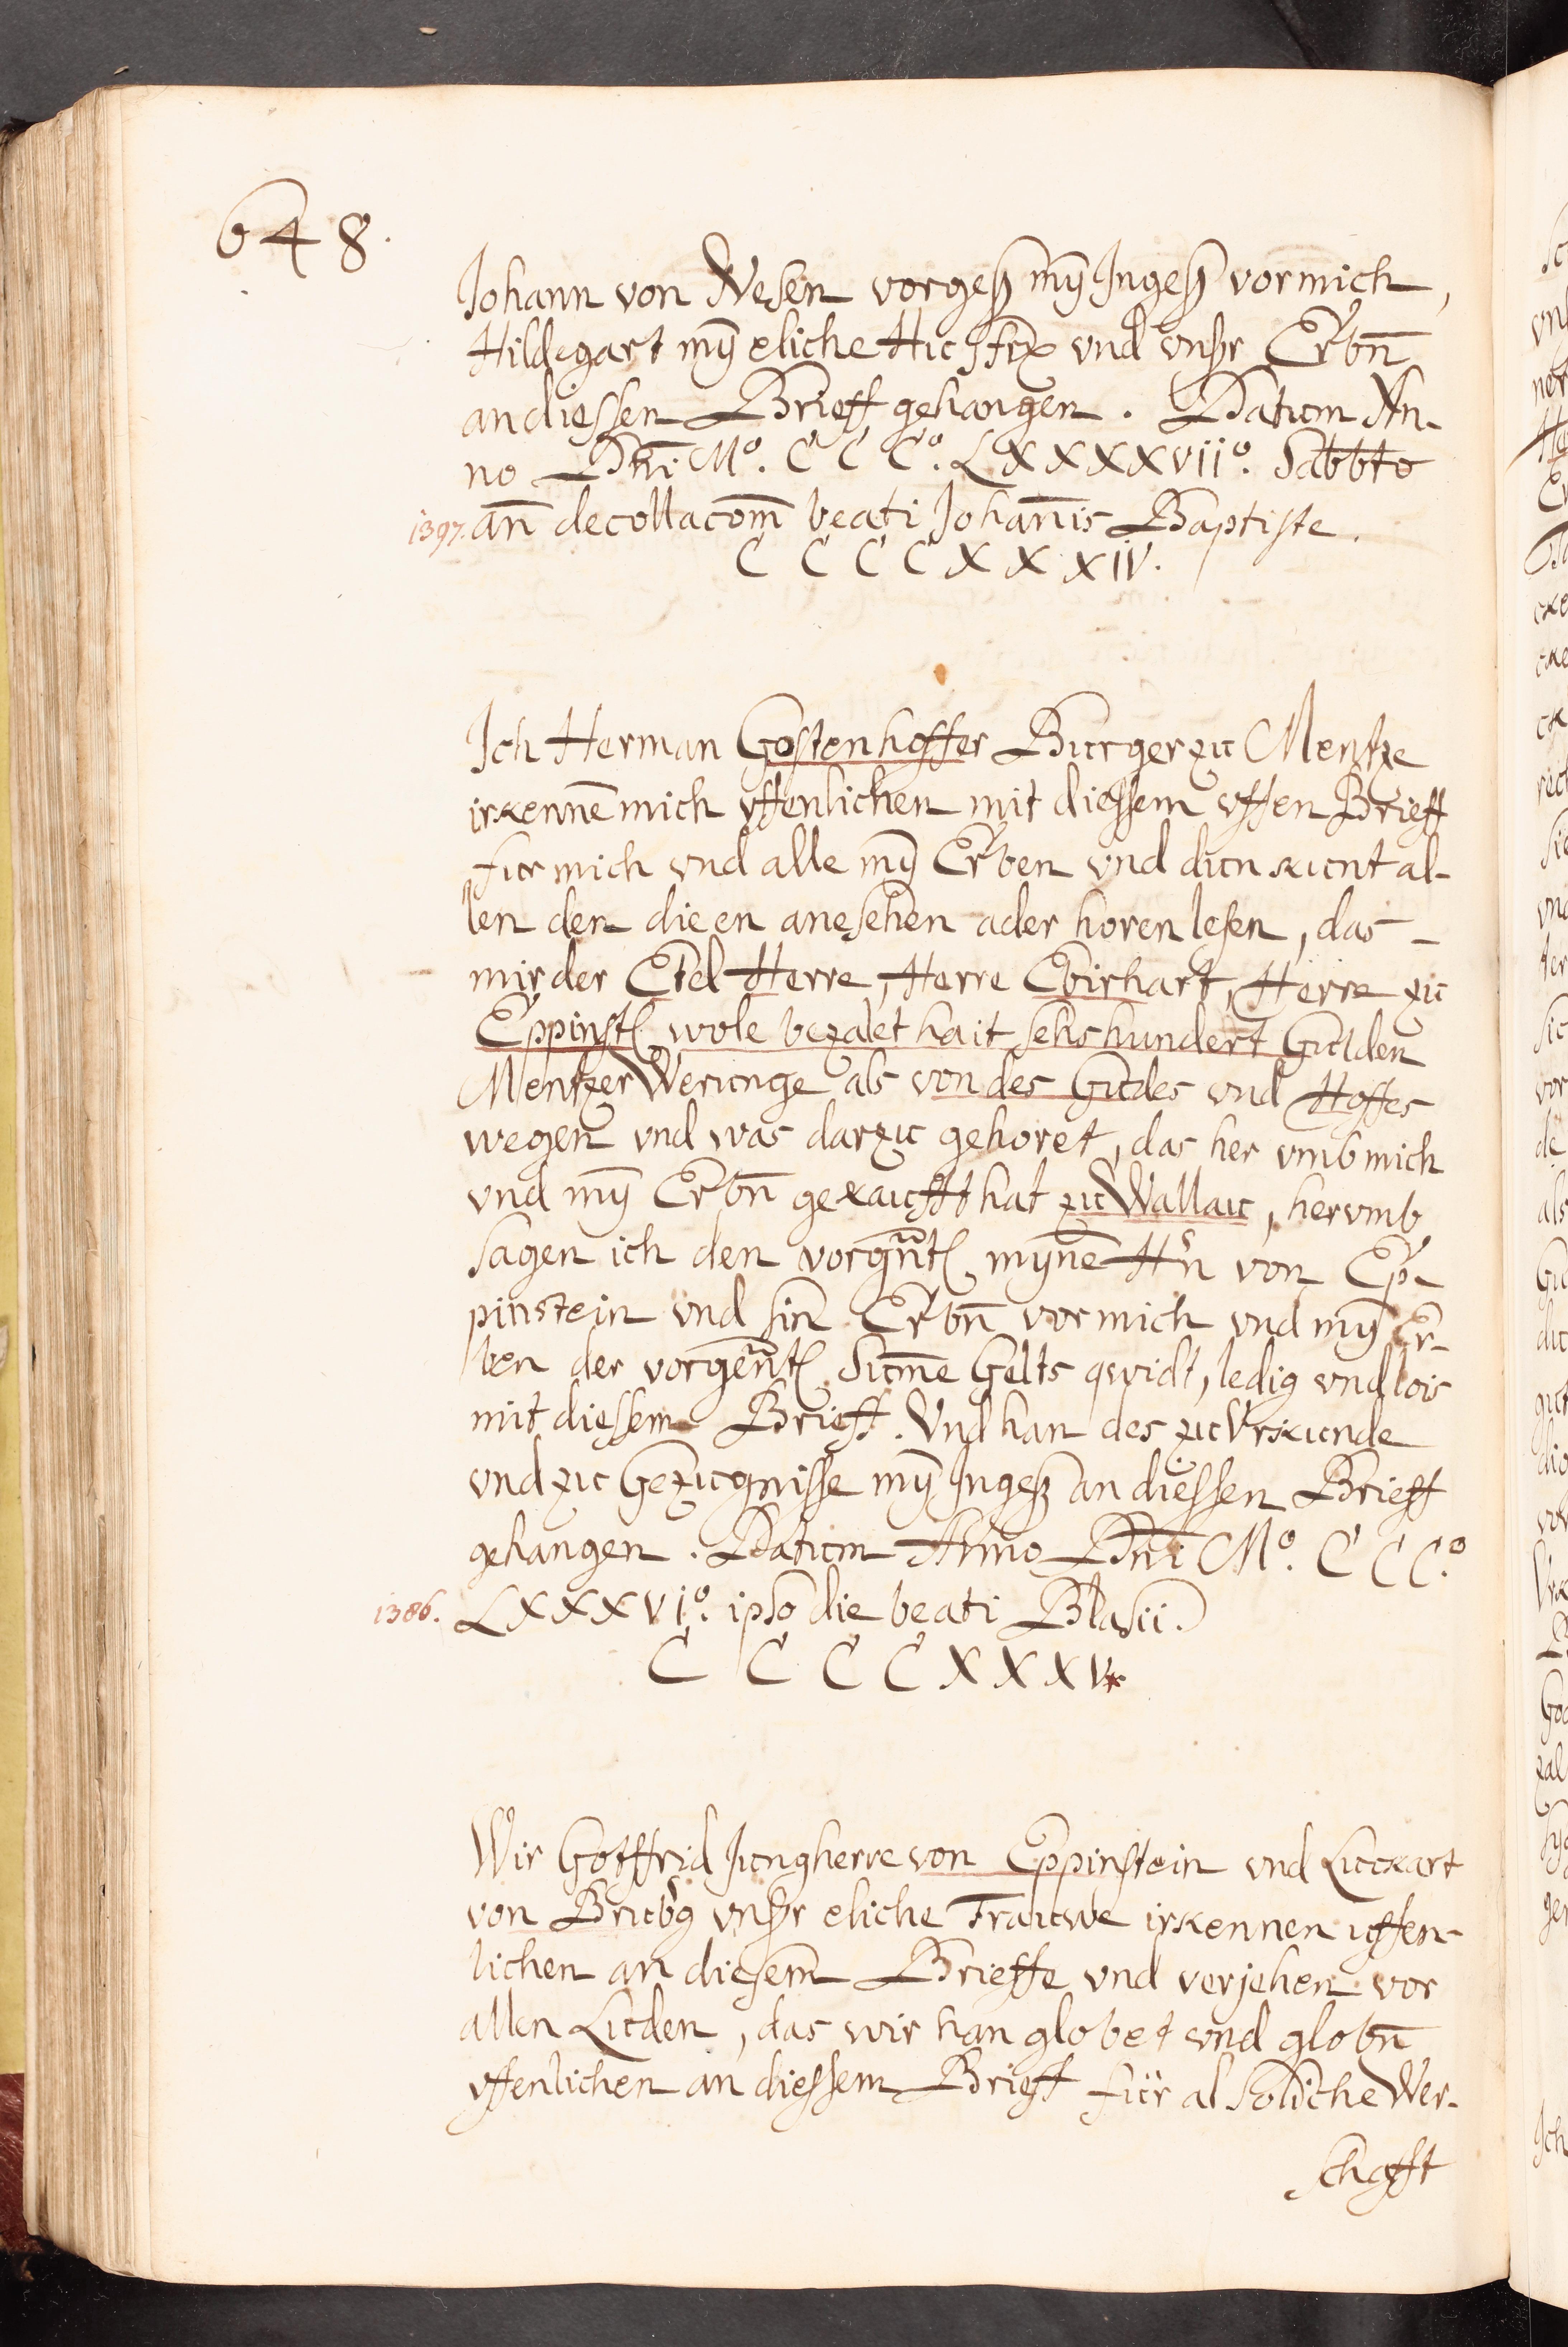 648.
Johann von Wesen vorges mȳ Ingeß vor mich,
Hildegart mȳ eliche Husfrx vnd vnßr Erbn̄
an diessen Brieff gehangen. Datum An-
no Dn̄i Mº. C C Cº. LXXXXVIIº. Sabbto
1397. an̄ decollacom̄ beati Johan̄is Baptiste.
C C C C X X X IV.
Ich Herman Gostenhoffer Burger zu Mentze
irkenne mich vffenlichen mit diessem vffen Brieff
fur mich vnd alle mȳ Erben vnd dun kunt al-
len den die en anesehen ader horen lesen, das
mir der Etel Herre, Herre Ebirhart, Herre zu
Eppinst. wole bezalet hait sehs hundert Gulden
Mentzer Werunge als von des Gudes vnd Hoffes
wegen vnd was darzu gehoret, das her vmb mich
vnd mȳ Erbn̄ gekaufft hat zu Wallau, hervmb
sagen ich den vorgn̄t. mynē Hn̄ von Ep-
pinstein vnd sin̄ Erbn̄ vor mich vnd mȳ Er-
ben der vorgen̄t. Sum̄e Gelts qwidt, ledig vnd lois
mit diessem Brieff. Vnd han des zu Vrkunde
vnd zu Gezugnisse mȳ Ingeß an diessen Brieff
gehangen. Datum Anno Dn̄i Mº. C C Cº.
1386. LXXXVIº. ipso die beati Blasii.
C C C C X X X V
Wir Gotffrid Jungherre von Eppinstein vnd Luckart
von Brubg vnßr eliche Frauwe irkennen uffen-
lichen an diesem Brieffe vnd verjehen vor
allen Luden, das wir han globet vnd globn̄
vffenlichen an diessem Brieff fur al soliche Wer-
schafft